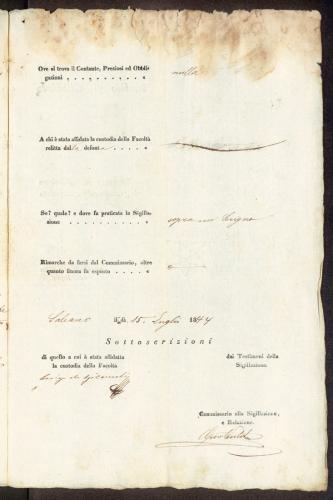 Ove si trova il Contante, Preziosi ed Obbli-
gazioni . . . . . . . . . « nulla
A chi è stata affidata la custodia della Facoltà
relitta dalla defunta . . . . . «
Se? quale? e dove fu praticata la Sigilla-
zione . . . . . . . . . . « sopra
Rimarche da farsi dal Commissario, oltre
quanto finora fu esposto . . . . «
li 15. Luglio 1844
Sottoscrizioni
di quello a cui è stata affidata
la custodia della Facoltà
dai Testimoni della
Sigillazione.
Commissario alla Sigillazione,
e Relazione.